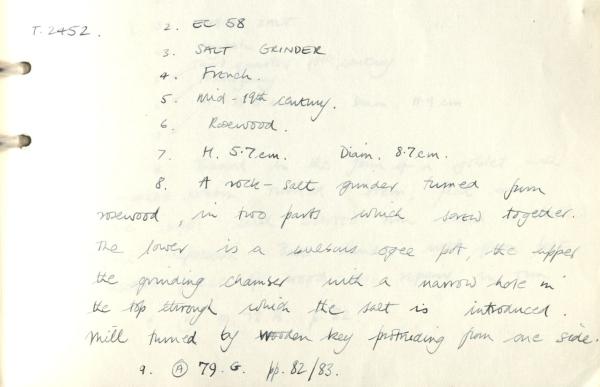 T.2452. 2. EC 58
3. SALT GRINDER
4. French.
5. Mid-19th century.
6. Rosewood.
7. H. 5.7cm. Diam. 8.7cm.
8. A rock-salt grinder, turned from
rosewood, in two parts which screw together.
The lower is a bulbous ogee pot, the upper
the grinding chamber with a narrow hole in
the top through which the salt is introduced.
Mill turned by wooden key protruding from one side.
9. A 79.G. pp.82/83.